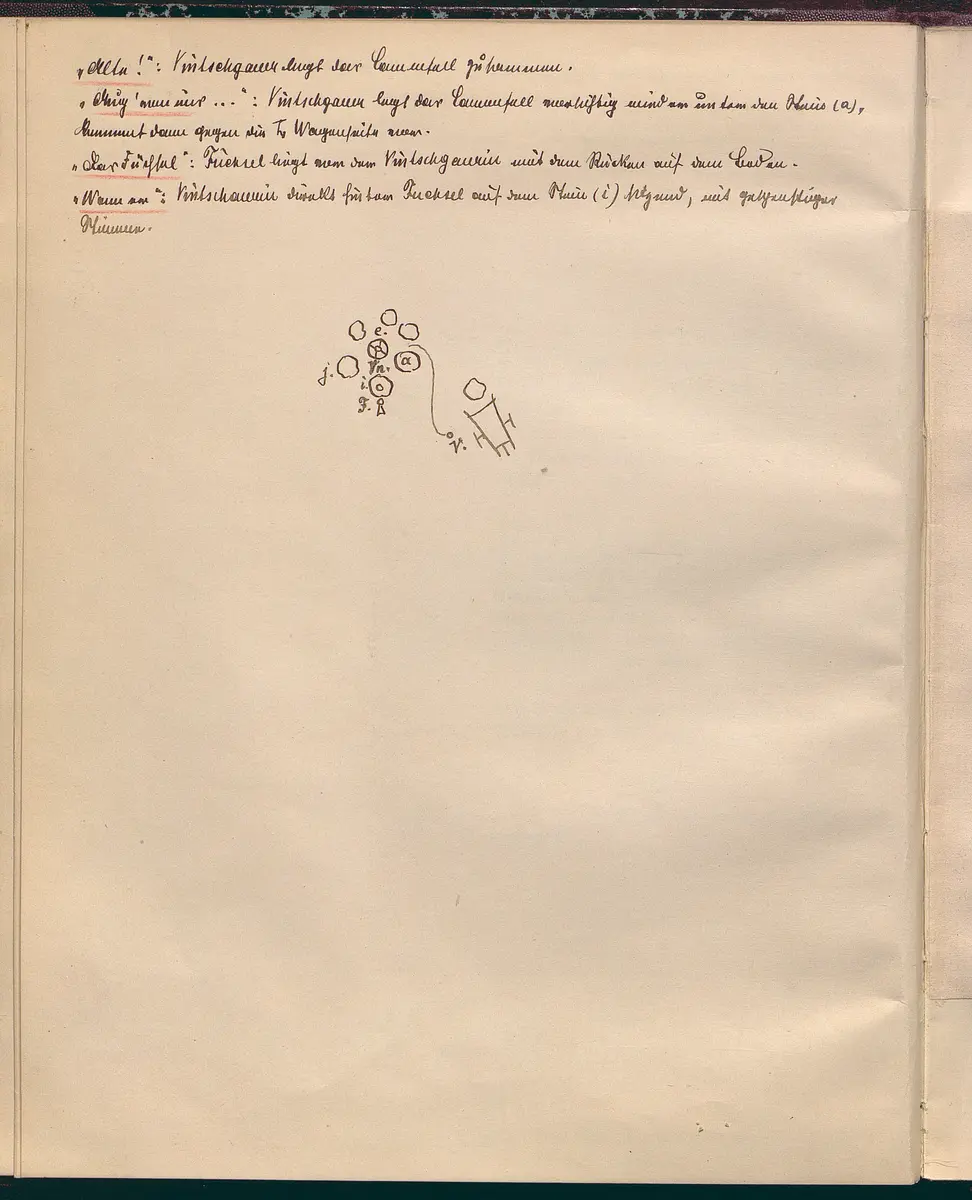 „Alte!“: Vintschgauer legt das Lammfell zusammen.
„Mug' nur ...“: Vintschgauer legt das Lammfell vorsichtig wieder unter den Stein (a),
kommt dann gegen die Wagenseite vor.
„Der Füchsel“: Fuchsel liegt vor dem Vintschgauerin mit dem Rücken auf dem Boden.
„Wenn er“: Vintschgauerin direkt hinter Fuchsel auf dem Stein (i) sitzend, mit
Stimme.
e.
j. Vn. a
i.
F.
V.